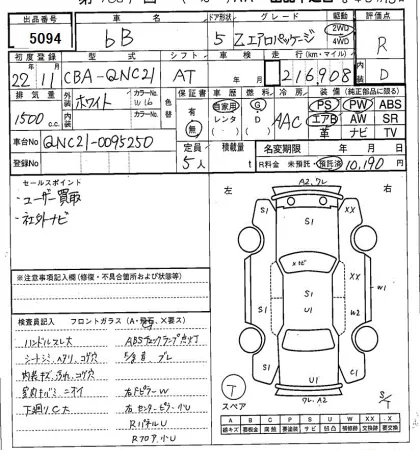 出品番号 車名 ドア形状 グレード 駆動 評価点
5094 bB 5 Zエアロパッケージ 2WD 4WD R
初度登録 型式 シフト 車検 走行(km・マイル)
22年 11月 CBA-QNC21 AT 年 月 216,908 D
排気量 外装 カラーNo. 色替 保証書 車歴 燃料 冷房 装備(純正部品に限る)
1500 c.c. ホワイト W16 有 無 自家用 レンタ G D AAC PS PW ABS
内装 カラーNo. エアB AW SR
車台No QNC21-0095250 革 ナビ TV
登録No 定員 5人 積載量 t 名変期限 年 月 日
R料金 未預託・預託済 10,190 円
セールスポイント
・ユーザー買取
・社外ナビ
左 右
A2, クレ
S1 S1 XX
メモビ
XX
W1
S1 S1 W2
U1 U1 C1
クレ, A2
T
スペア
S/T
※注意事項記入欄(修復・不具合箇所および状態等)
検査員記入 フロントガラス(A・飛石・X要ス)
ハンドルスレ大 ABSチェックランプ点灯
内装キズ、汚れ、コゲ穴 右FピラーW
下廻りC大 右センターピラー小U
RパネルU
Rフロア小U
A B C P S U W X XX
線キズ 要板金 腐蝕 要塗装 サビ 凹凸 補修跡 要交換 交換済